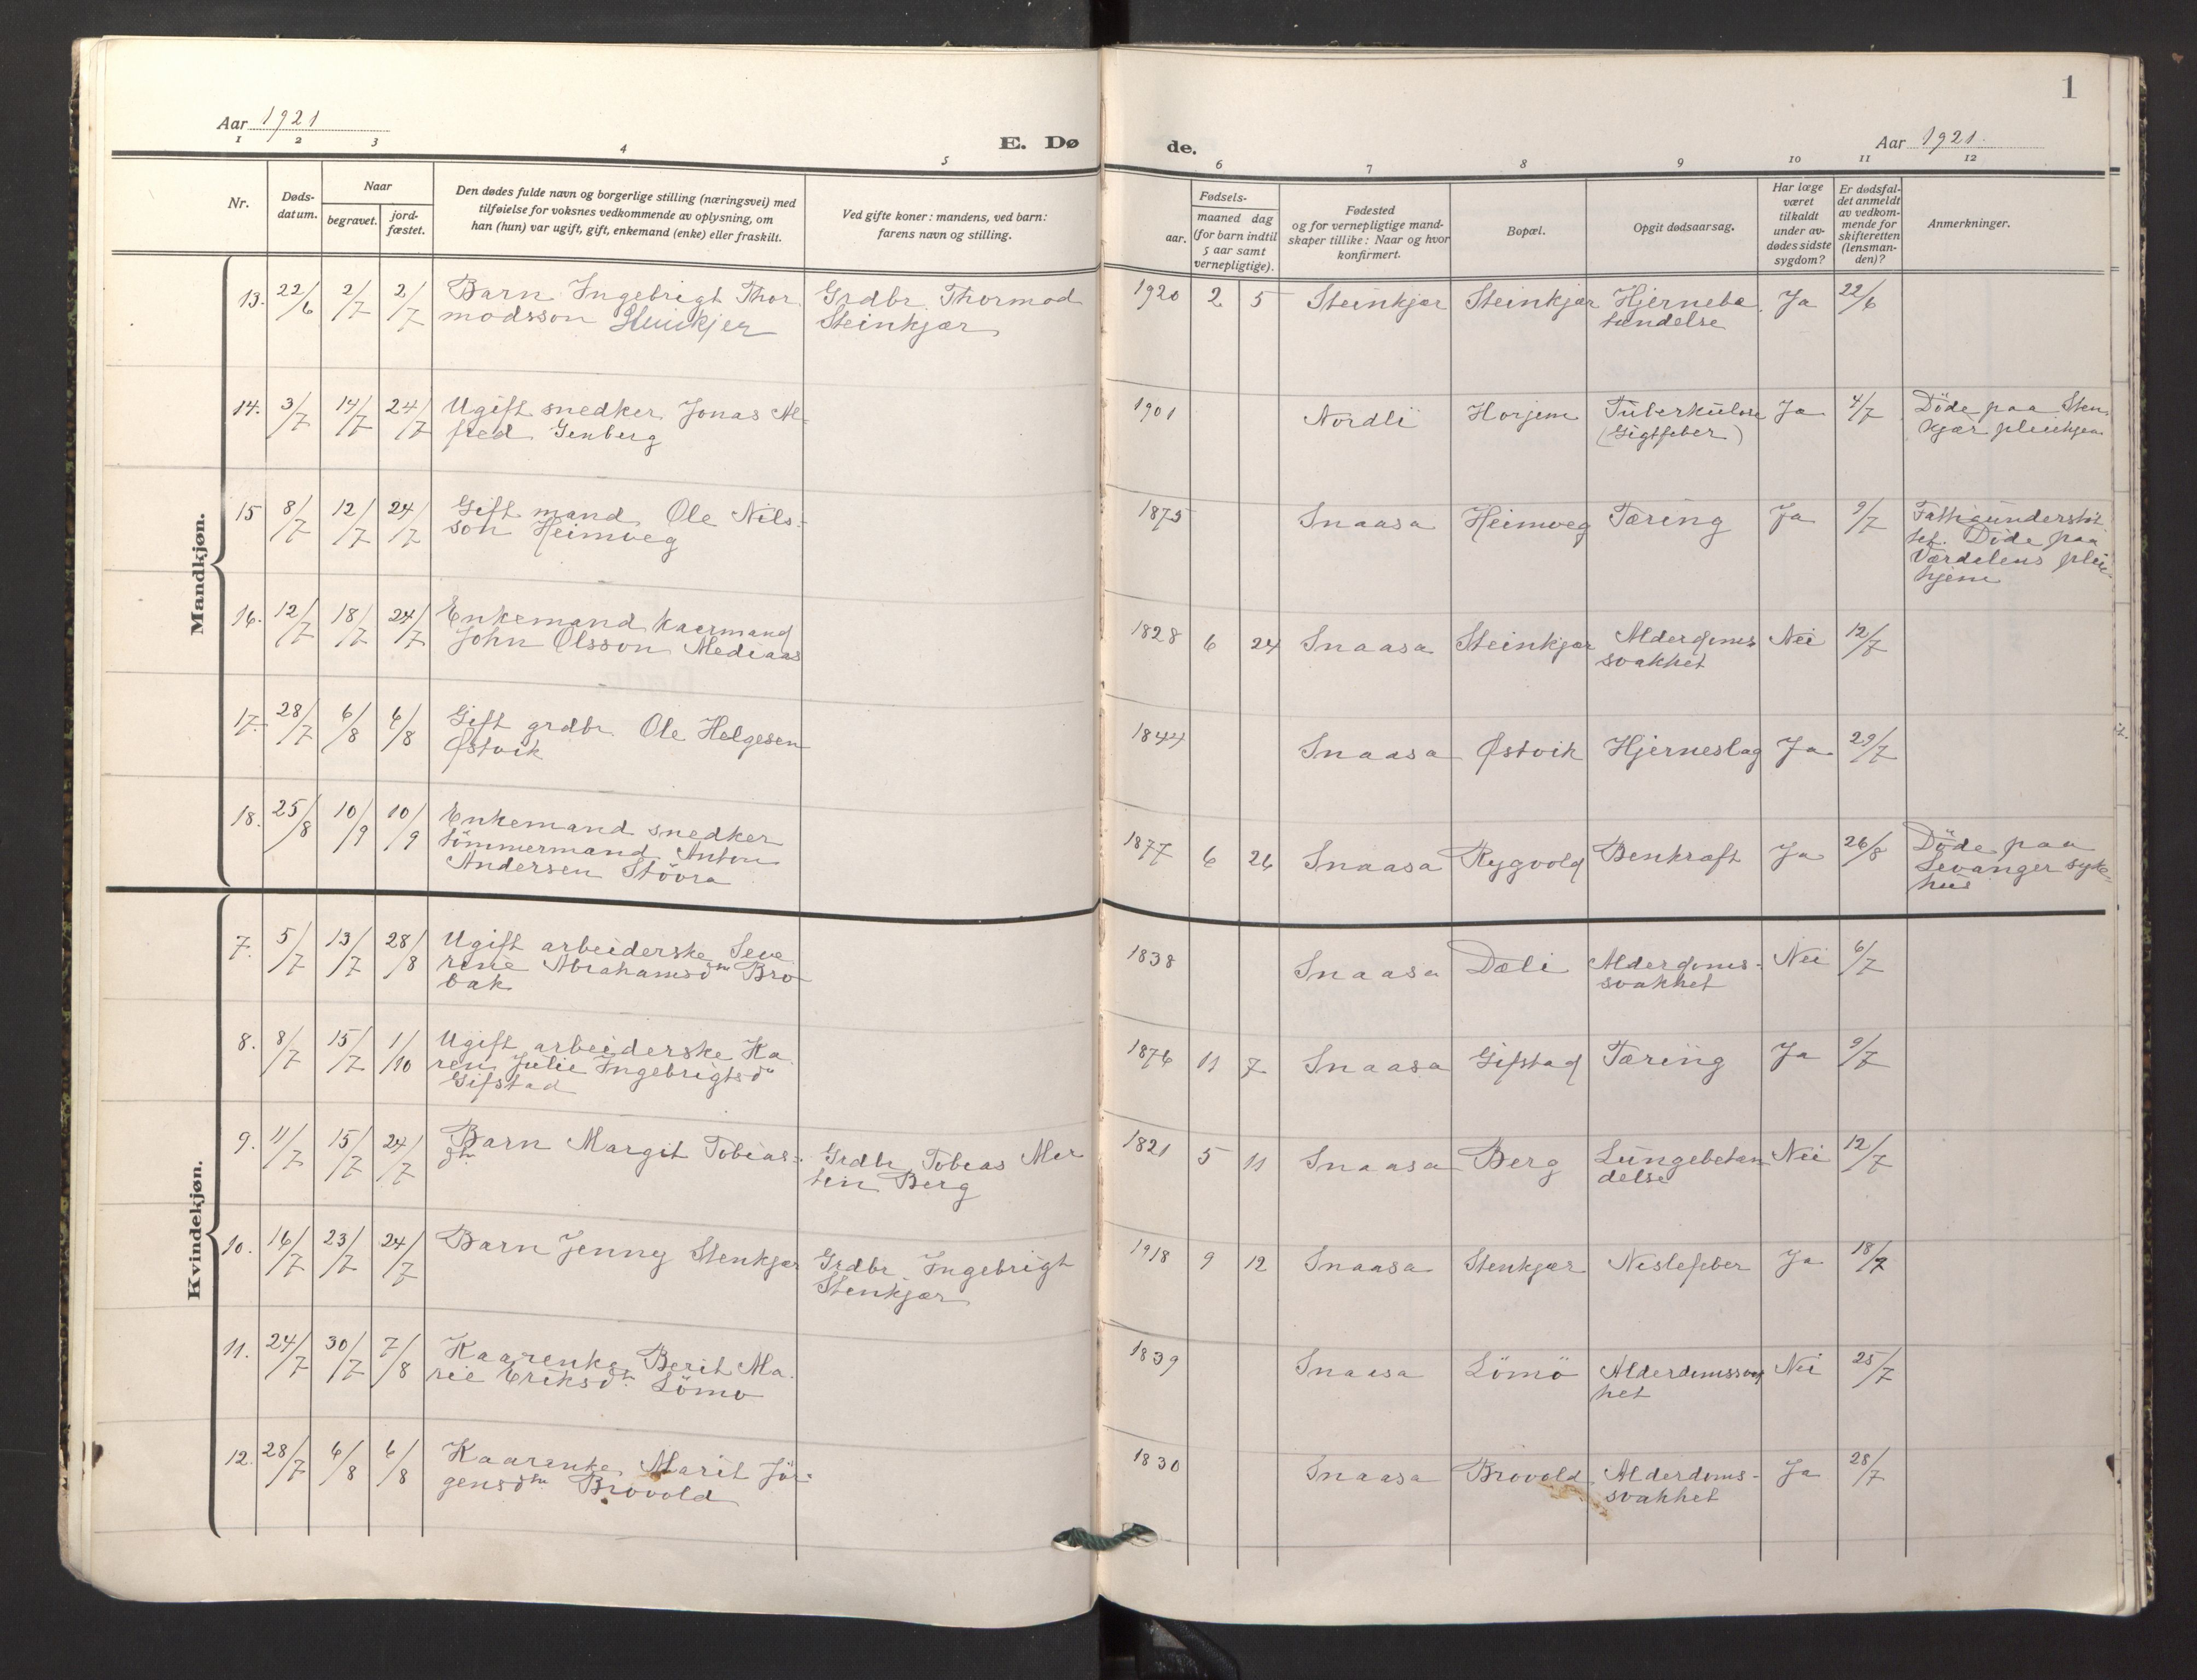 1
Aar 1921
E. Dø
de.
Aar 1921.
1 2 3 4 5
6 7 8 9 10 11 12
Nr.
Døds-
datum.
Naar
begravet.
jord-
fæstet.
Den dødes fulde navn og borgerlige stilling (næringsvei) med
tilføielse for voksnes vedkommende av oplysning, om
han (hun) var ugift, gift, enkemand (enke) eller fraskilt.
Ved gifte koner: mandens, ved barn:
farens navn og stilling.
Fødsels-
aar.
maaned dag
(for barn indtil
5 aar samt
vernepligtige).
Fødested
og for vernepligtige mand-
skaper tillike: Naar og hvor
konfirmert.
Bopæl.
Opgit dødsaarsag.
Har læge
været
tilkaldt
under av-
dødes sidste
sygdom?
Er dødsfal-
det anmeldt
av vedkom-
mende for
skifteretten
(lensman-
den)?
Anmerkninger.
Mandkjøn.
13. 22/6 2/7 2/7 Barn Ingebrigt Thor
modsson Steinkjer
Grdbr. Thormod
Steinkjær
1920 2 5 Steinkjær Steinkjær Hjernebe
tændelse Ja 22/6
14. 3/7 14/7 24/7 Ugift snedker Jonas Al-
fred Genberg
1901 Nordli Horjem Tuberkulose
(Gigtfeber) Ja 4/7 Döde paa Sten
kjær pleiehjem
15 8/7 12/7 24/7 Gift mand Ole Nils-
son Heimveg
1875 Snaasa Heimveg Tæring Ja 9/7 Fattigunderstöt
tet. Döde paa
Værdalens pleie-
hjem
16. 12/7 18/7 24/7 Enkemand kaarmand
John Olsson Mediaas
1828 6 24 Snaasa Steinkjær Alderdoms-
svakhet Nei 12/7
17. 28/7 6/8 6/8 Gift grdbr. Ole Helgesen
Østvik
1844 Snaasa Østvik Hjerneslag Ja 29/7
18. 25/8 10/9 10/9 Enkemand snedker
tömmermand Anton
Andersen Stövra
1877 6 26 Snaasa Rygvold Benkræft Ja 26/8 Döde paa
Levanger syke-
hus
Kvindekjøn.
7. 5/7 13/7 28/8 Ugift arbeiderske Seve
rine Abrahamsdtr Bro
bak
1838 Snaasa Dæli Alderdoms-
svakhet Nei 6/7
8. 8/7 15/7 1/10 Ugift arbeiderske Ka
ren Julie Ingebrigtsdr
Gifstad
1876 11 7 Snaasa Gifstad Tæring Ja 9/7
9. 11/7 15/7 24/7 Barn Margit Tobias-
dtr
Grdbr Tobias Mor
ten Berg
1821 5 11 Snaasa Berg Lungebetæn
delse Nei 12/7
10. 16/7 23/7 24/7 Barn Jenny Stenkjær Grdbr Ingebrigt
Stenkjær
1918 9 12 Snaasa Stenkjær Neslefeber Ja 18/7
11. 24/7 30/7 7/8 Kaarenke Berit Ma
rie Eriksdtr Lömo
1839 Snaasa Lömö Alderdomssvag
het Nei 25/7
12. 28/7 6/8 6/8 Kaarenke Marit Jör-
gensdtr Brovold
1830 Snaasa Brovold Alderdoms-
svakhet Ja 28/7